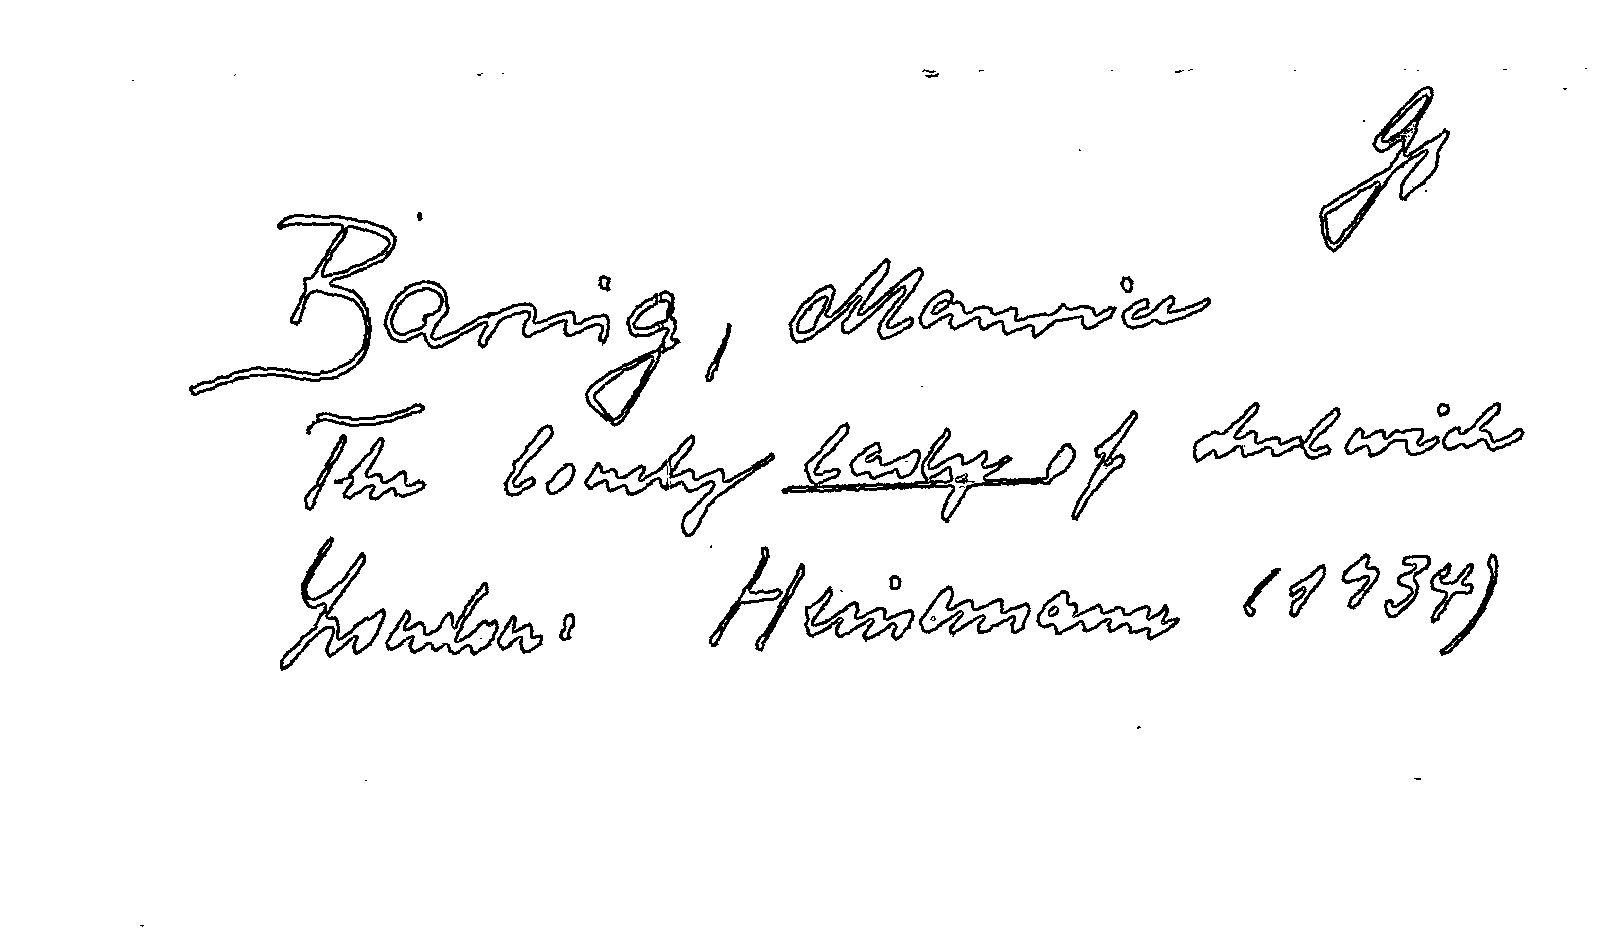 Baring, Maurice
The lonely lady of dulwich
London: Heinemann (1934)